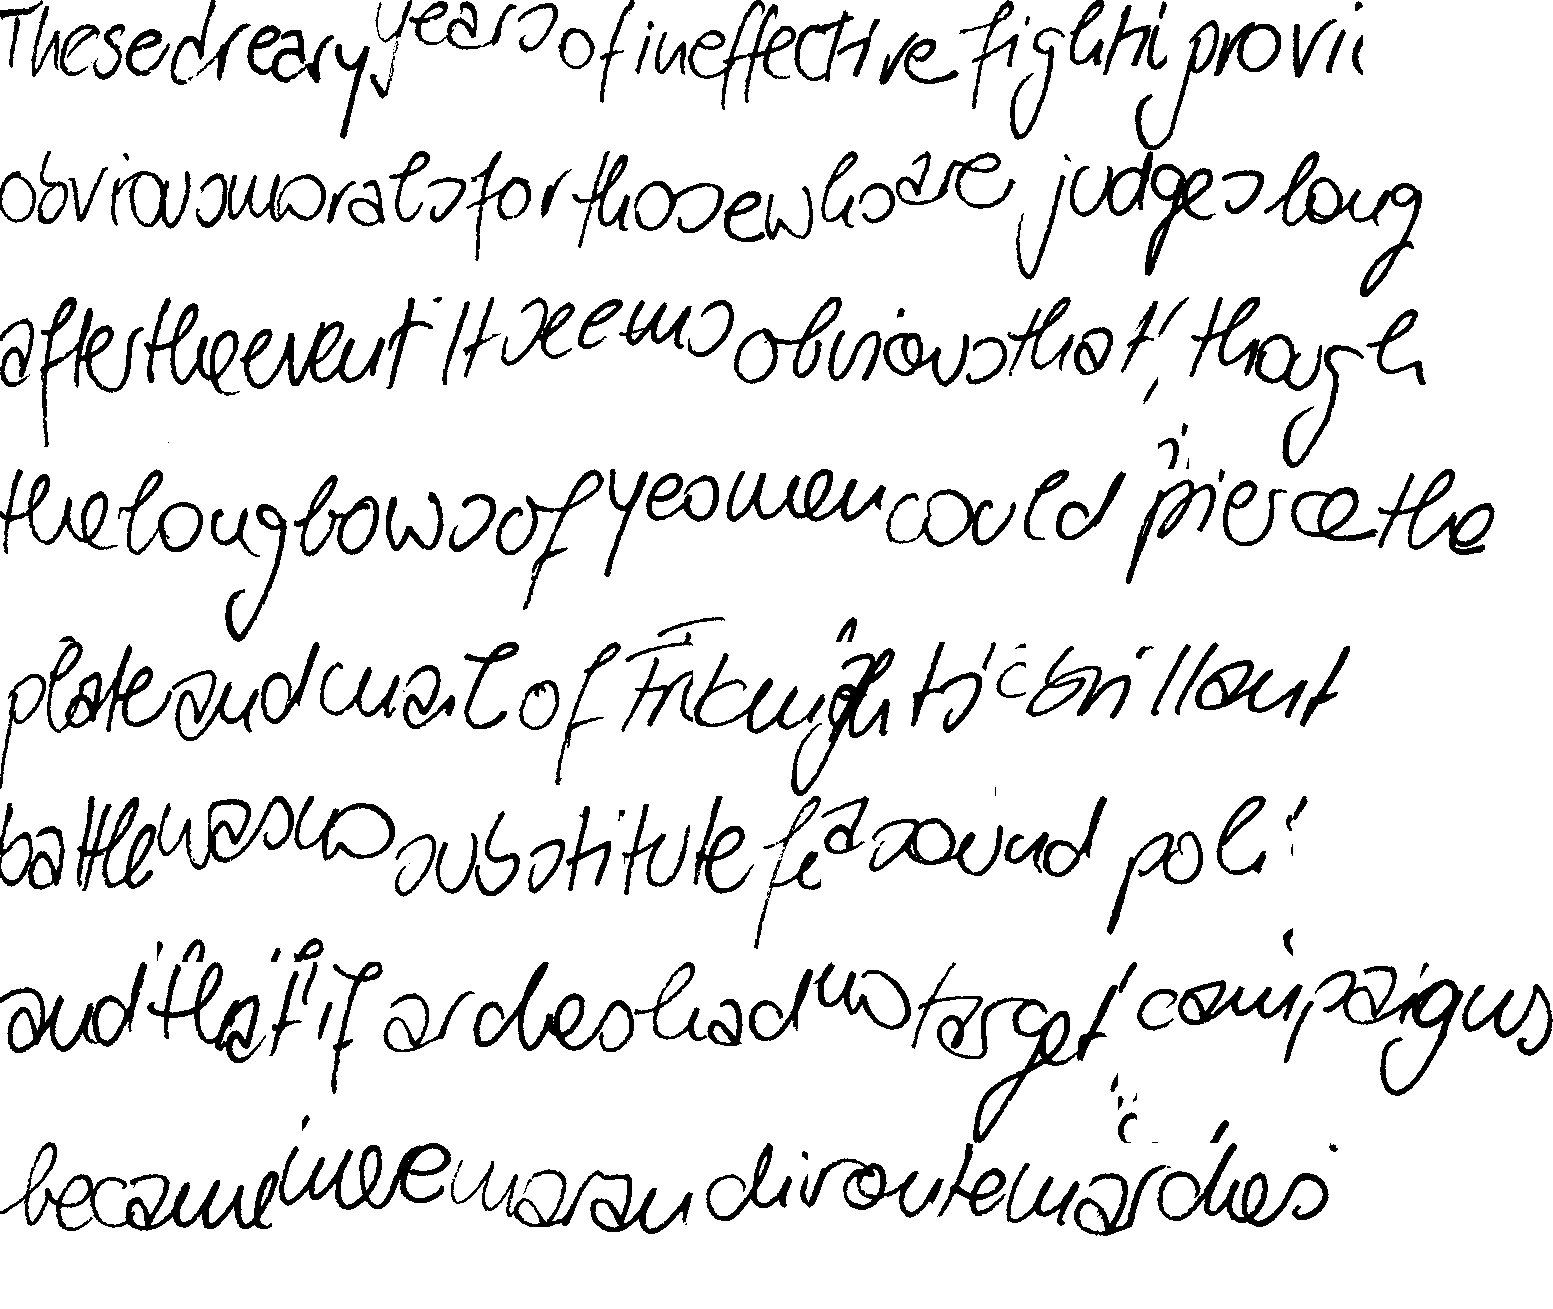 These dreary years of ineffective fighti provi
obvious morals for those who are judges long
after the event It seems obvious that, though
the longbows of yeomen could pierce the
plate and mail of knights brilliant
battle was no substitute a sound poli
and that if arches had no target campaigns
became mere and route marches